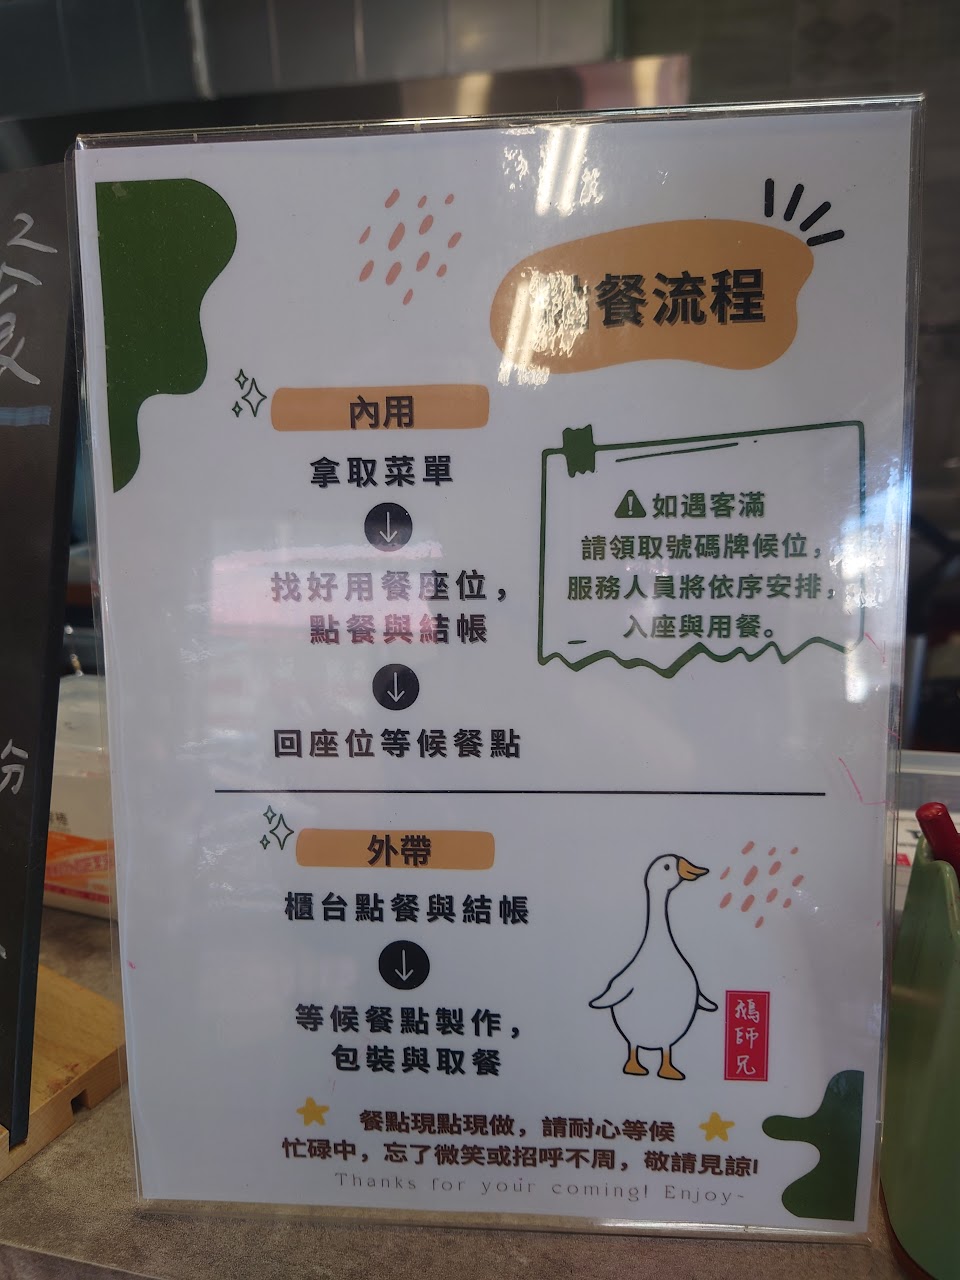 餐流程
內用
拿取菜單
找好用餐座位，
點餐與結帳
回座位等候餐點
如遇客滿
請領取號碼牌候位，
服務人員將依序安排，
入座與用餐。
外帶
櫃台點餐與結帳
等候餐點製作，
包裝與取餐
鵝師兄
餐點現點現做，請耐心等候
忙碌中，忘了微笑或招呼不周，敬請見諒!
Thanks for your coming! Enjoy~
份